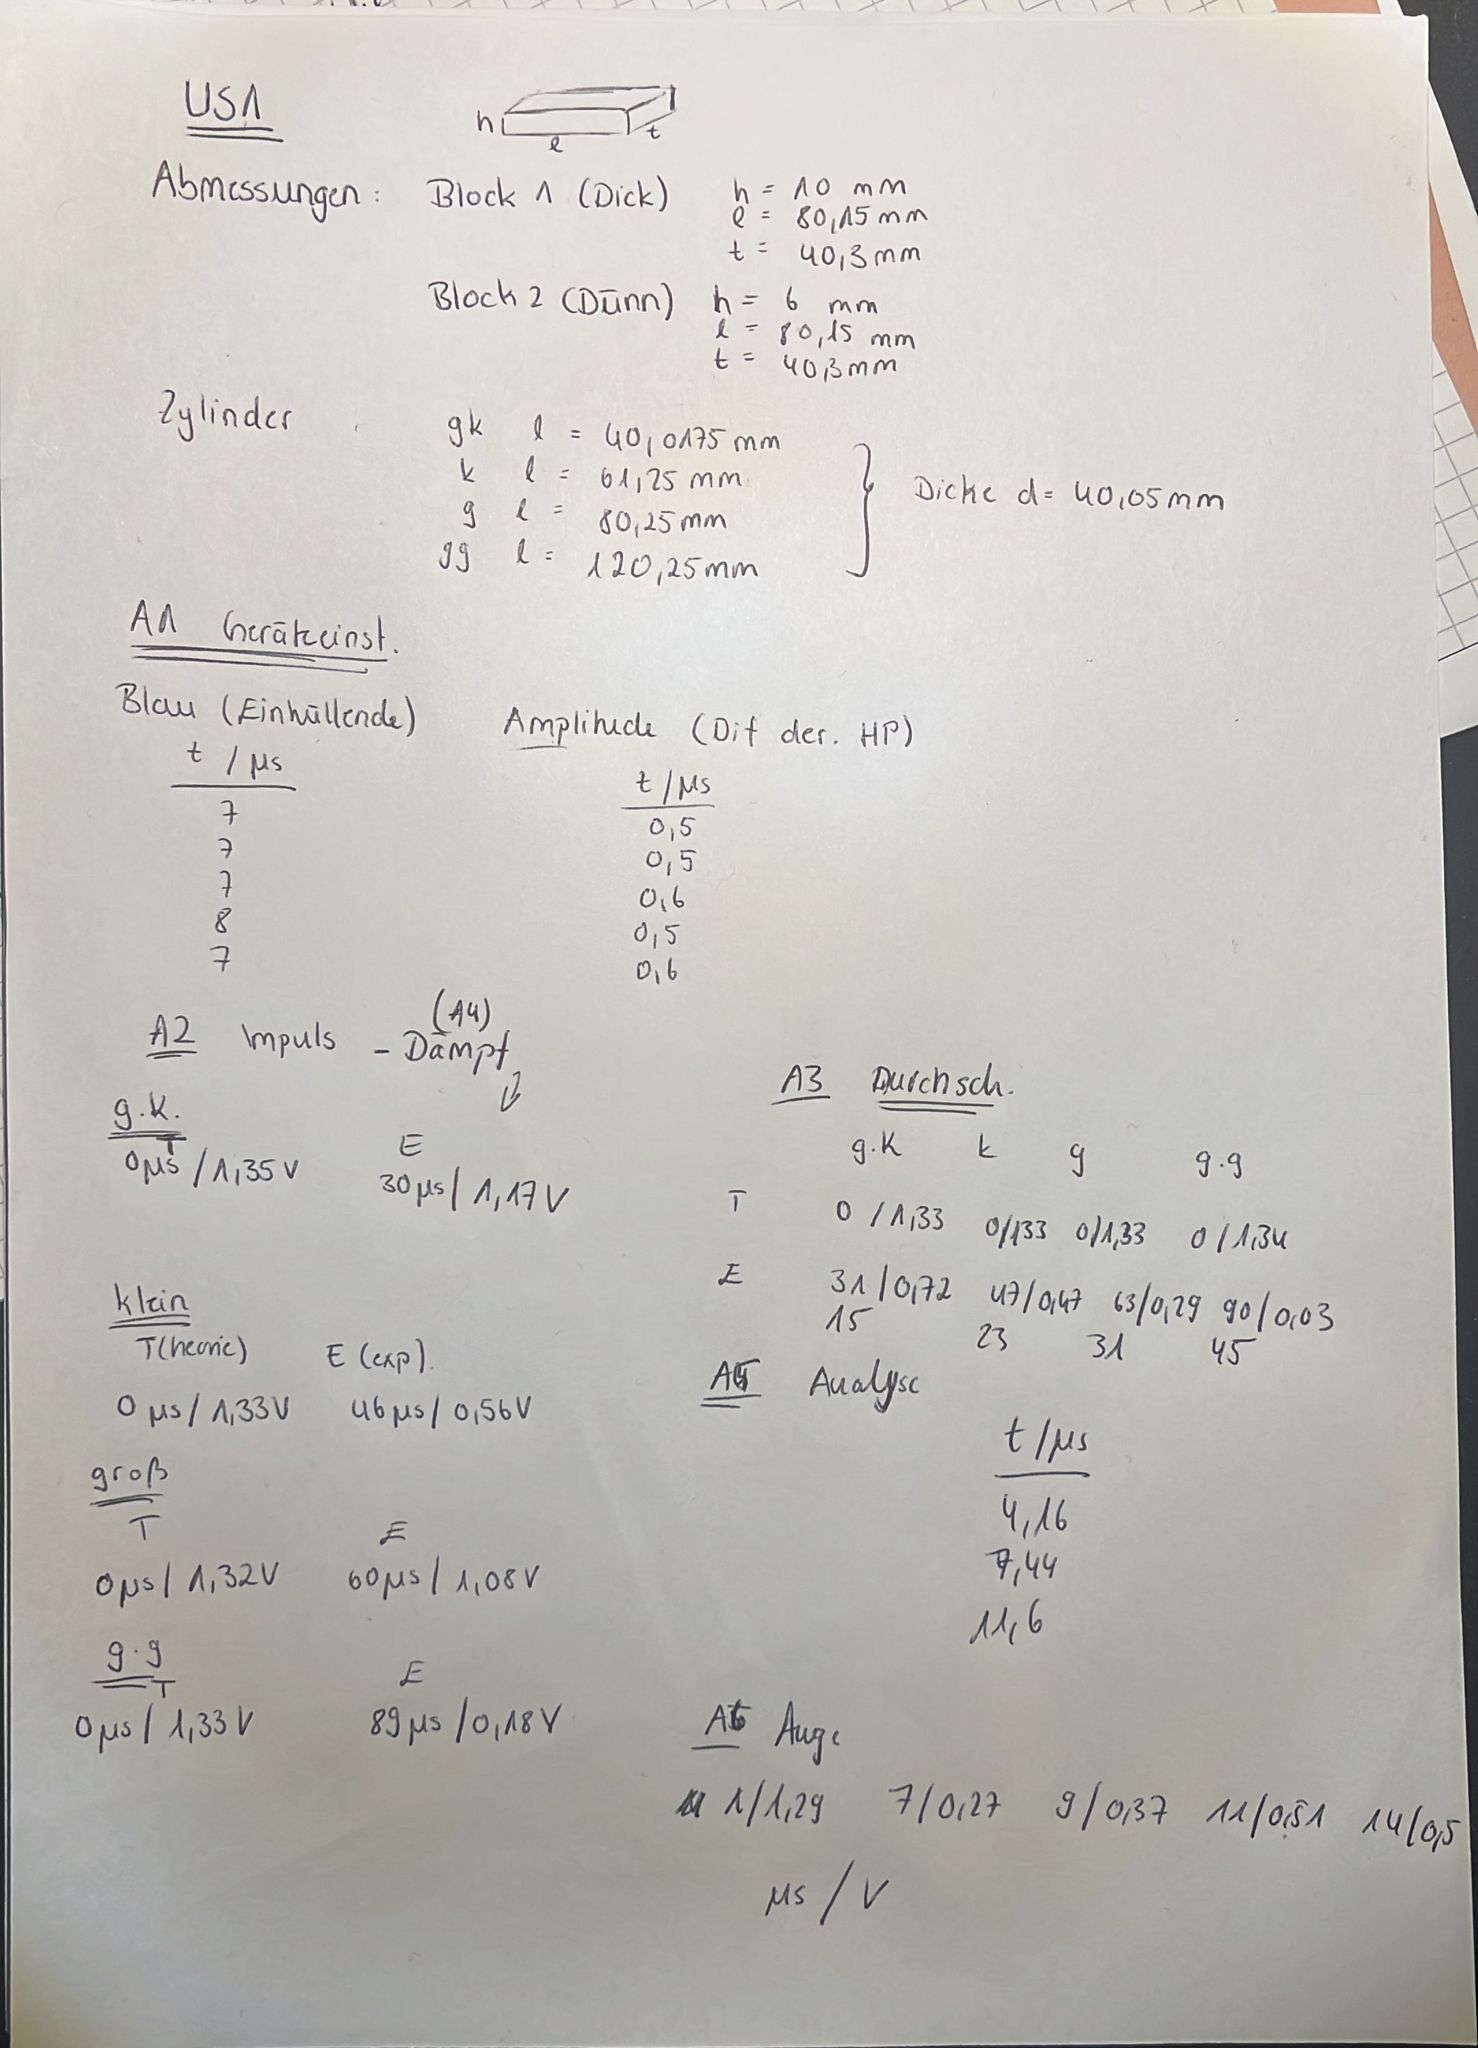 US1
h
l
t
Abmessungen: Block 1 (Dick) h = 10 mm
l = 80,15 mm
t = 40,3 mm
Block 2 (Dünn) h = 6 mm
l = 80,15 mm
t = 40,3 mm
Zylinder gk l = 40,0175 mm
k l = 61,25 mm
g l = 80,25 mm
gg l = 120,25 mm
Dicke d = 40,05 mm
A1 Geräteinst.
Blau (Einhüllende)
t / µs
7
7
7
8
7
Amplitude (Dif der. HP)
t / µs
0,5
0,5
0,6
0,5
0,6
A2 Impuls - Dämpf
(A4)
g.k.
T E
0µs / 1,35 V 30µs / 1,17 V
klein
T(heorie) E (exp).
0 µs / 1,33 V 46µs / 0,56 V
groß
T E
0µs / 1,32 V 60µs / 1,08 V
g.g
T E
0µs / 1,33 V 89µs / 0,18 V
A3 Durchsch.
g.k k g g.g
T 0 / 1,33 0/133 0/1,33 0 / 1,34
E 31 / 0,72 47/0,47 63/0,29 90 / 0,03
15 23 31 45
A5 Analyse
t / µs
4,16
7,44
11,6
A6 Auge
1/1,29 7/0,27 9/0,37 11/0,51 14/0,5
µs / V